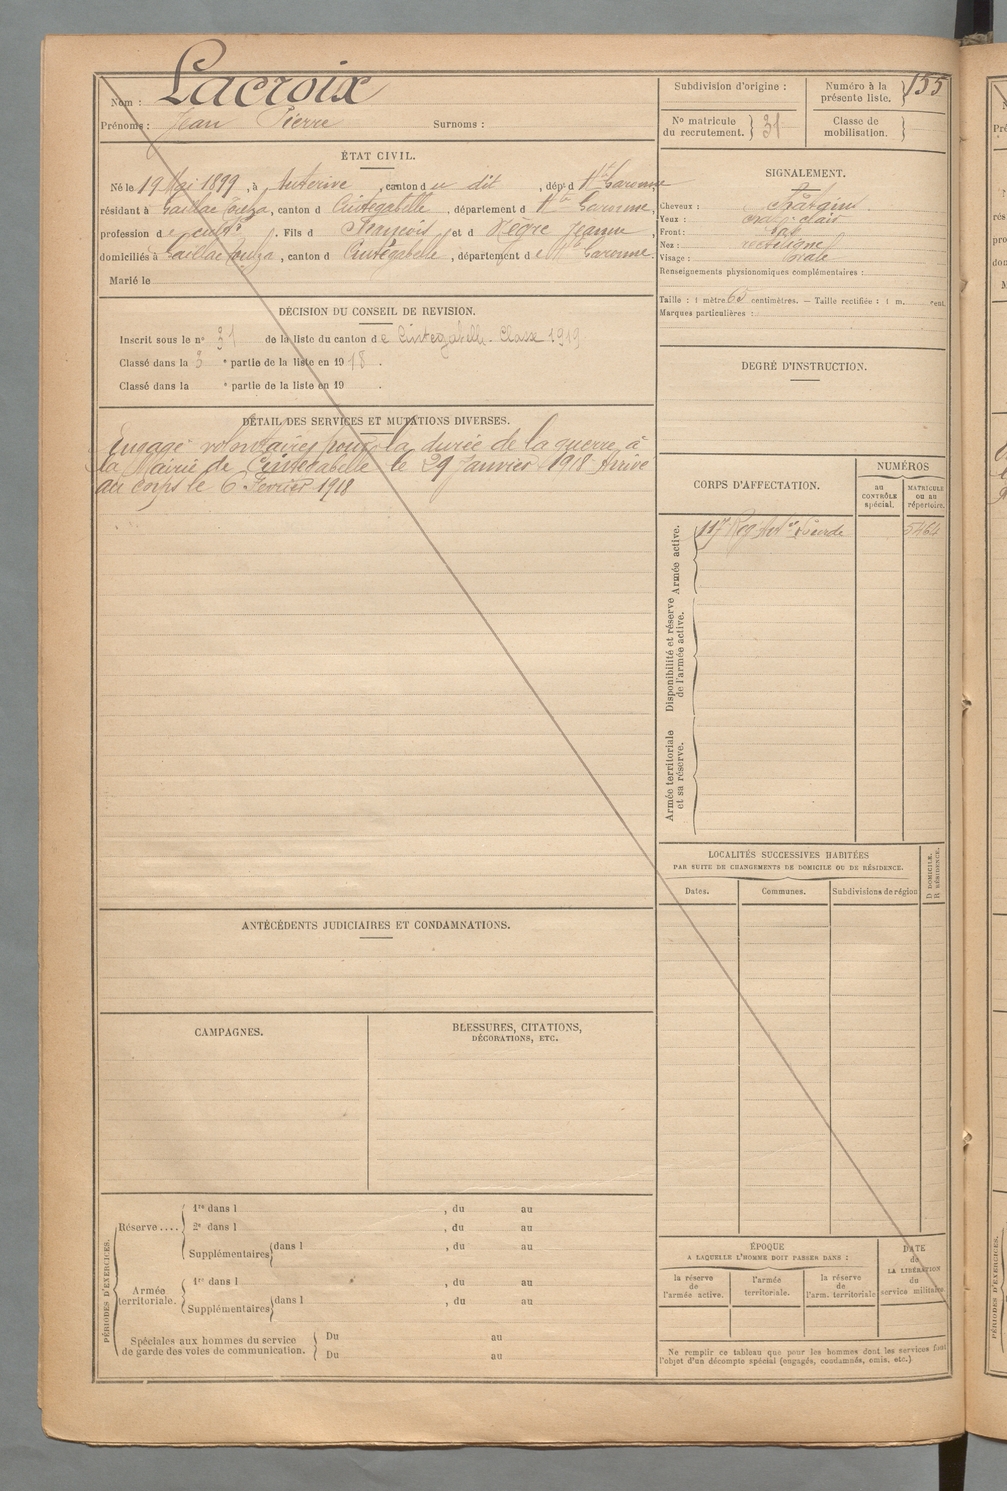 Nom : Lacroix
Prénoms : Jean Pierre Surnoms :
Subdivision d'origine :
Numéro à la présente liste. } 155
No matricule du recrutement. } 31
Classe de mobilisation. }
ÉTAT CIVIL.
Né le 19 Mai 1899, à Auterive, canton du dit, dépt d Hte Garonne
résidant à Gaillac Toulza, canton d Cintegabelle, département d Hte Garonne,
profession de cultr. Fils d François, et d Nègre Jeanne,
domiciliés à Gaillac Toulza, canton d Cintegabelle, département de Hte Garonne.
Marié le
SIGNALEMENT.
Cheveux : châtains
Yeux : clair
Front :
Nez : rectiligne
Visage : ovale
Renseignements physionomiques complémentaires :
Taille : 1 mètre 65 centimètres. — Taille rectifiée : 1 m. cent.
Marques particulières :
DÉCISION DU CONSEIL DE REVISION.
Inscrit sous le no 31 de la liste du canton de Cintegabelle. Classe 1919
Classé dans la 3 e partie de la liste en 1918.
Classé dans la e partie de la liste en 19 .
DEGRÉ D'INSTRUCTION.
DÉTAIL DES SERVICES ET MUTATIONS DIVERSES.
Engagé volontaires pour la durée de la guerre à
la Mairie de Cintegabelle le 29 Janvier 1918 Arrivé
au corps le 6 Février 1918
CORPS D'AFFECTATION.
NUMÉROS
au CONTRÔLE spécial.
MATRICULE ou au répertoire.
Armée active.
117 Reg Artie Lourde 5464
Disponibilité et réserve de l'armée active.
Armée territoriale et sa réserve.
LOCALITÉS SUCCESSIVES HABITÉES
PAR SUITE DE CHANGEMENTS DE DOMICILE OU DE RÉSIDENCE.
D DOMICILE.
R RÉSIDENCE.
Dates. Communes. Subdivisions de région
ANTÉCÉDENTS JUDICIAIRES ET CONDAMNATIONS.
CAMPAGNES.
BLESSURES, CITATIONS,
DÉCORATIONS, ETC.
PÉRIODES D'EXERCICES.
Réserve....
1re dans l , du au
2e dans l , du au
Supplémentaires dans l , du au
Armée territoriale.
1re dans l , du au
Supplémentaires dans l , du au
Spéciales aux hommes du service
de garde des voies de communication.
Du au
Du au
ÉPOQUE
A LAQUELLE L'HOMME DOIT PASSER DANS :
la réserve de l'armée active.
l'armée territoriale.
la réserve de l'arm. territoriale
DATE
de
LA LIBÉRATION
du
service militaire
Ne remplir ce tableau que pour les hommes dont les services font
l'objet d'un décompte spécial (engagés, condamnés, omis, etc.)